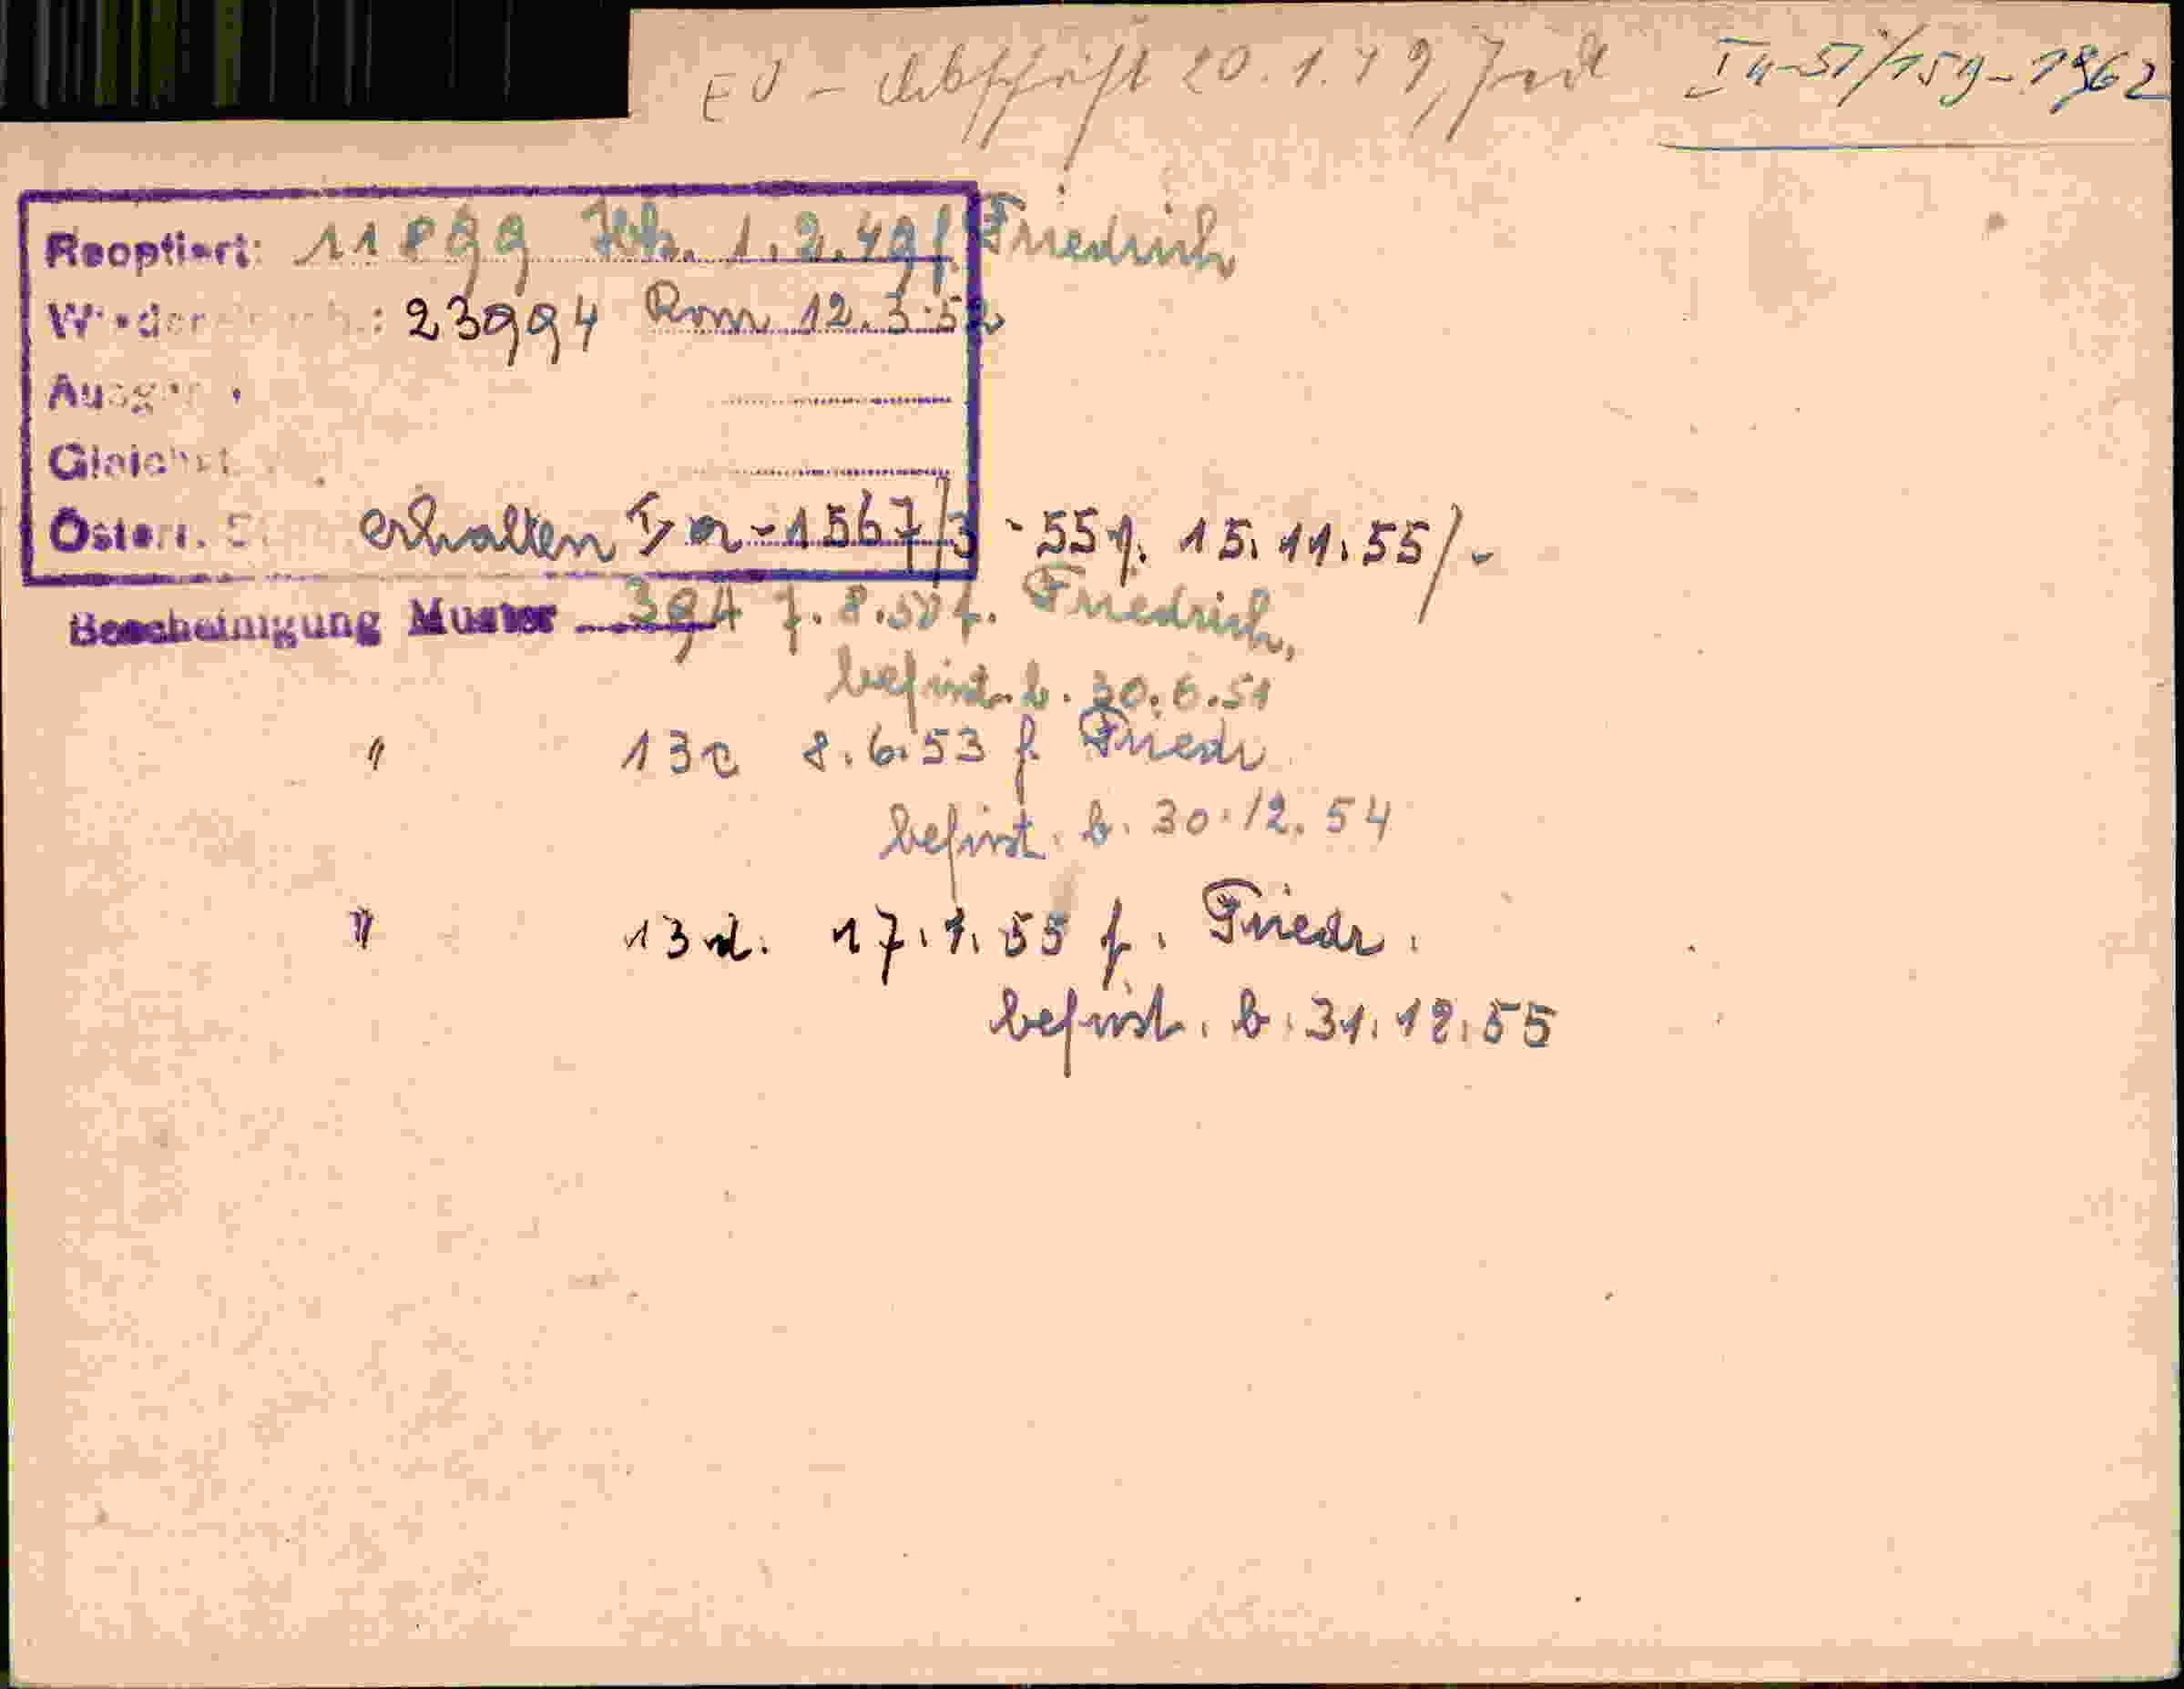 EU - Abschrift 20.1.49, Ia-51/159-1962
Reoptiert: 11899 1.2.49 f. Friedrich
23994 Rom 12.3.52
Österr. erhalten Ia-1567/3-55 f. 15.11.55/-
Bescheinigung Muster 394 7.8.50 f. Friedrich,
befrist. b. 30.6.51
" 13c 8.6.53 f. Friedr
befrist. b. 30.12.54
" 13d. 17.1.55 f. Friedr.
befrist. b. 31.12.55